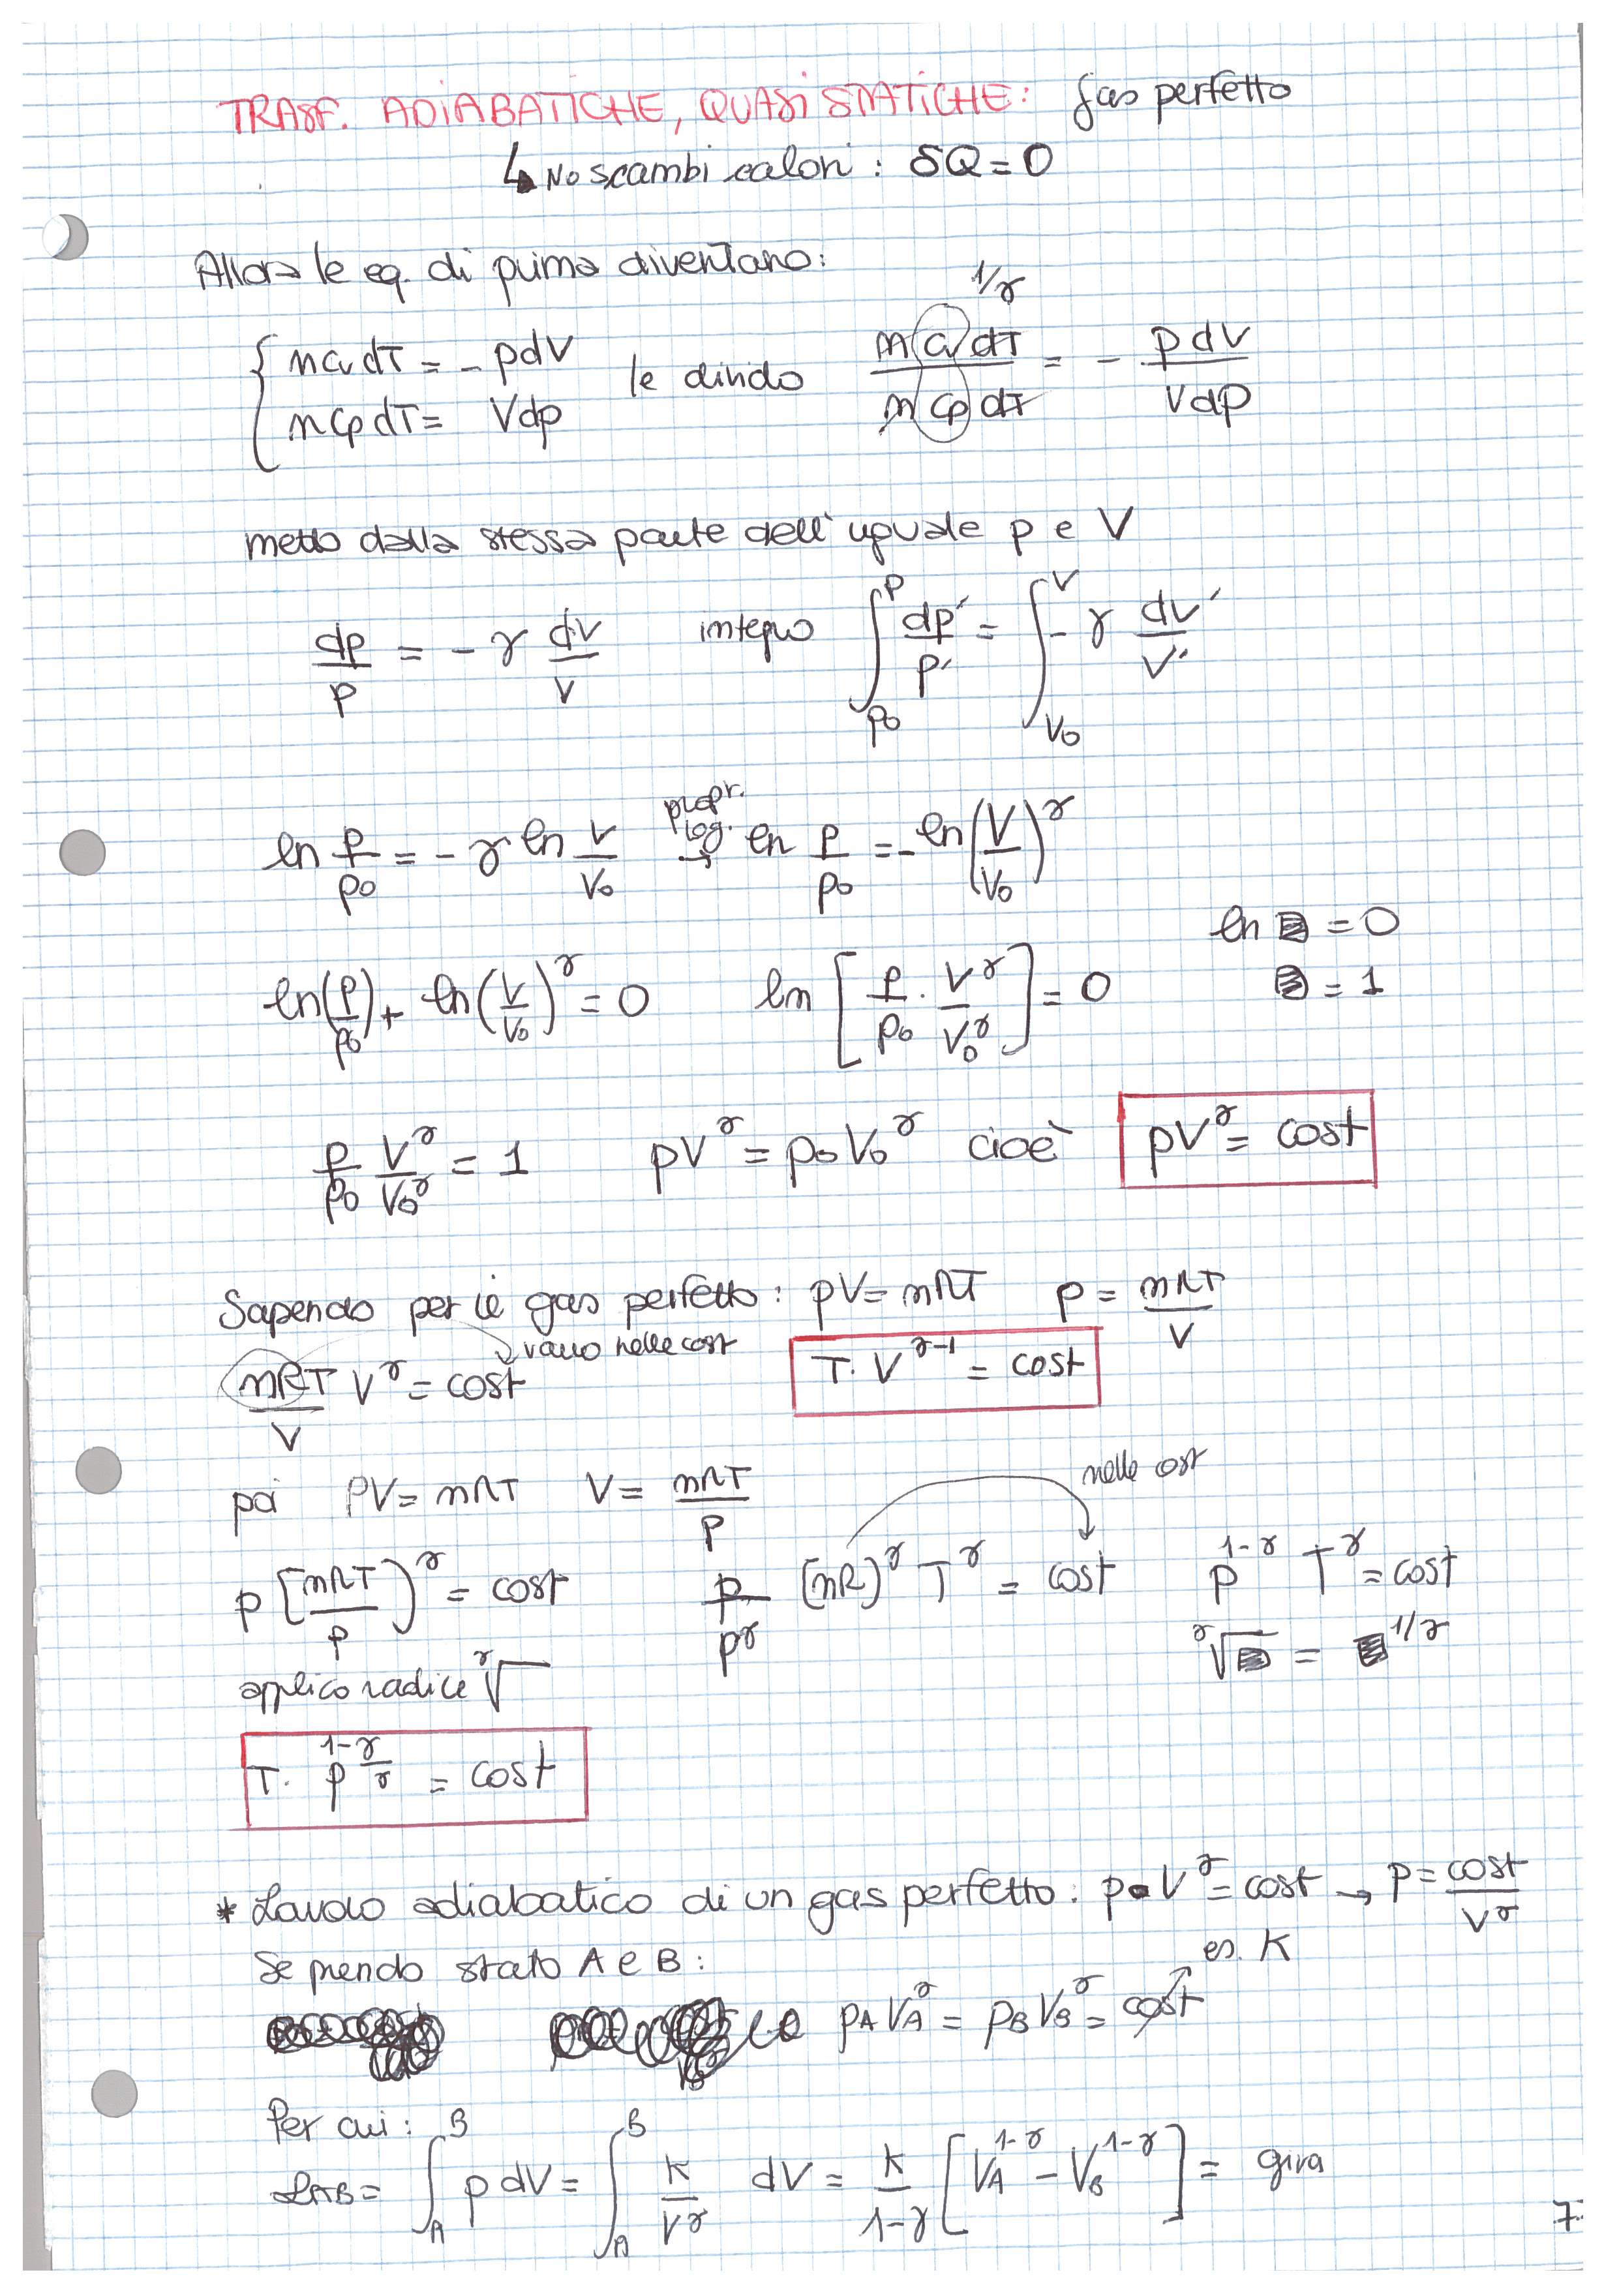 TRASF. ADIABATICHE, QUASI STATICHE: gas perfetto
↳ No scambi calori : δQ = 0
Allora le eq. di prima diventano:
{ n cv dT = - p dV
n cp dT = V dp
le divido (n cv dT)/(n cp dT) = - (p dV)/(V dp) 1/γ
metto dalla stessa parte dell'uguale p e V
dp/p = - γ dV/V integro ∫_{p0}^{p} dp'/p' = ∫_{V0}^{V} - γ dV'/V'
ln p/p0 = - γ ln V/V0 propr. log. → ln p/p0 = - ln (V/V0)^γ
ln ▨ = 0
ln(p/p0) + ln(V/V0)^γ = 0 ln [p/p0 · V^γ/V0^γ] = 0 ▨ = 1
p/p0 V^γ/V0^γ = 1 pV^γ = p0 V0^γ cioè pV^γ = cost
Sapendo per il gas perfetto : pV = nRT p = nRT/V
vanno nelle cost
nRT/V V^γ = cost T · V^{γ-1} = cost
poi PV = nRT V = nRT/p
nelle cost
p [nRT/p)^γ = cost p/p^γ (nR)^γ T^γ = cost p^{1-γ} T^γ = cost
applico radice ^γ√ ^γ√▨ = ▨^{1/γ}
T · p^{(1-γ)/γ} = cost
* Lavoro adiabatico di un gas perfetto : p · V^γ = cost → p = cost/V^γ
Se prendo stato A e B : es. K
pA VA^γ = pB VB^γ = cost
Per cui :
LAB = ∫_A^B p dV = ∫_A^B K/V^γ dV = K/(1-γ) [VA^{1-γ} - VB^{1-γ}] = gira
7.